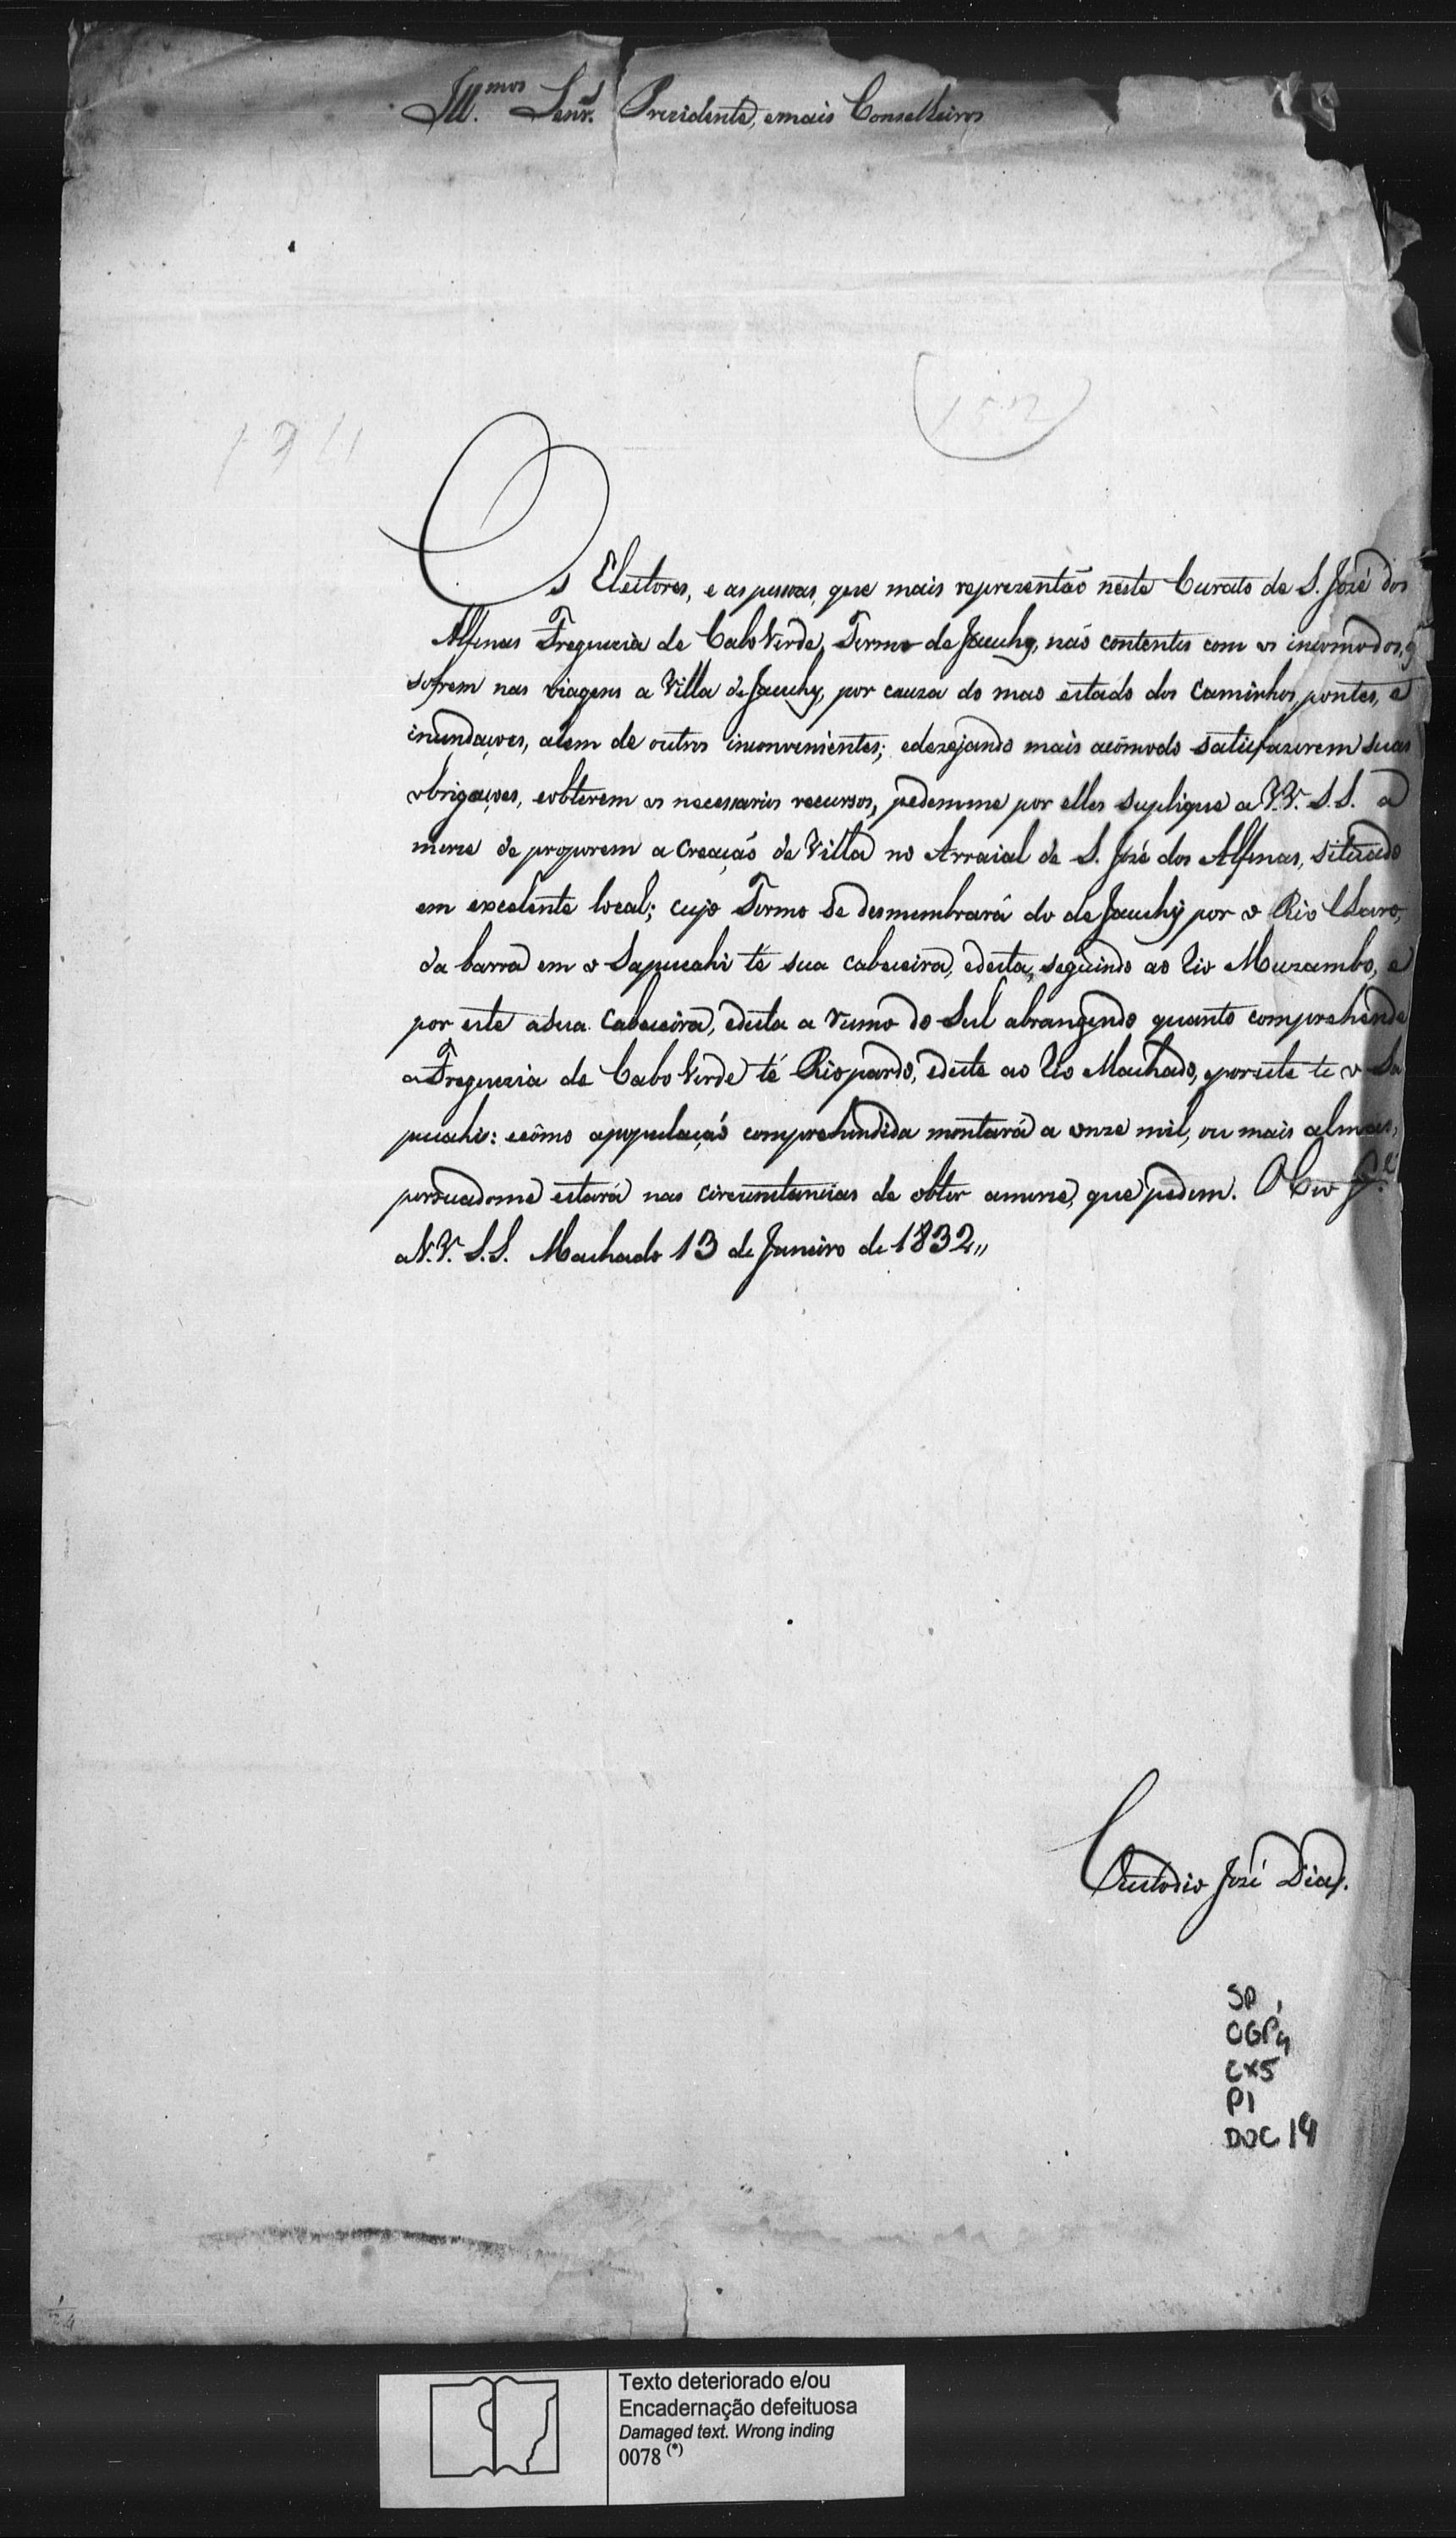 Ill.mos Senr.s Prezidente, emais Conselheiros
Os Eleitores, e aspessoas, que mais reprezentão neste Curato de S. José dos
Alfenas Freguezia de Cabo Verde, Termo de Jacuhy, não contentes com os incomodos, q
sofrem nas viagens a Villa de Jacuhy, por cauza do mao estado dos Caminhos, pontes, e
inundaçoes, alem de outros inconvenientes; edezejando mais acômodo satisfazerem suas
obrigaçoes, eobterem os necessarios recursos, pedemme por elles suplique a V.V. S.S. a
merce de proporem a Creação de Villa no Arraial de S. José dos Alfenas, situado
em excelente local; cujo Termo se desmembrará do de Jacuhy por o Rio Claro,
da barra em o Sapucahi té sua cabeceira, edesta, seguindo ao Rio Muzambo, e
por este asua Cabeceira, edesta a rumo do Sul abrangendo quanto comprehende
a Freguezia de Cabo Verde té Riopardo, edeste ao Rio Machado, eporeste te o Sa
pucahi: ecômo apopulação comprehendida montará a onze mil, ou mais almas,
persuadome estará nas circunstancias de obter amerce, que pedem. O Ceo G.e
a V.V. S.S. Machado 13 de Janeiro de 1832,,
Custodio José Dias.
SP 1
OGP4
CX5
P1
DOC 19
Texto deteriorado e/ou
Encadernação defeituosa
Damaged text. Wrong inding
0078 (*)